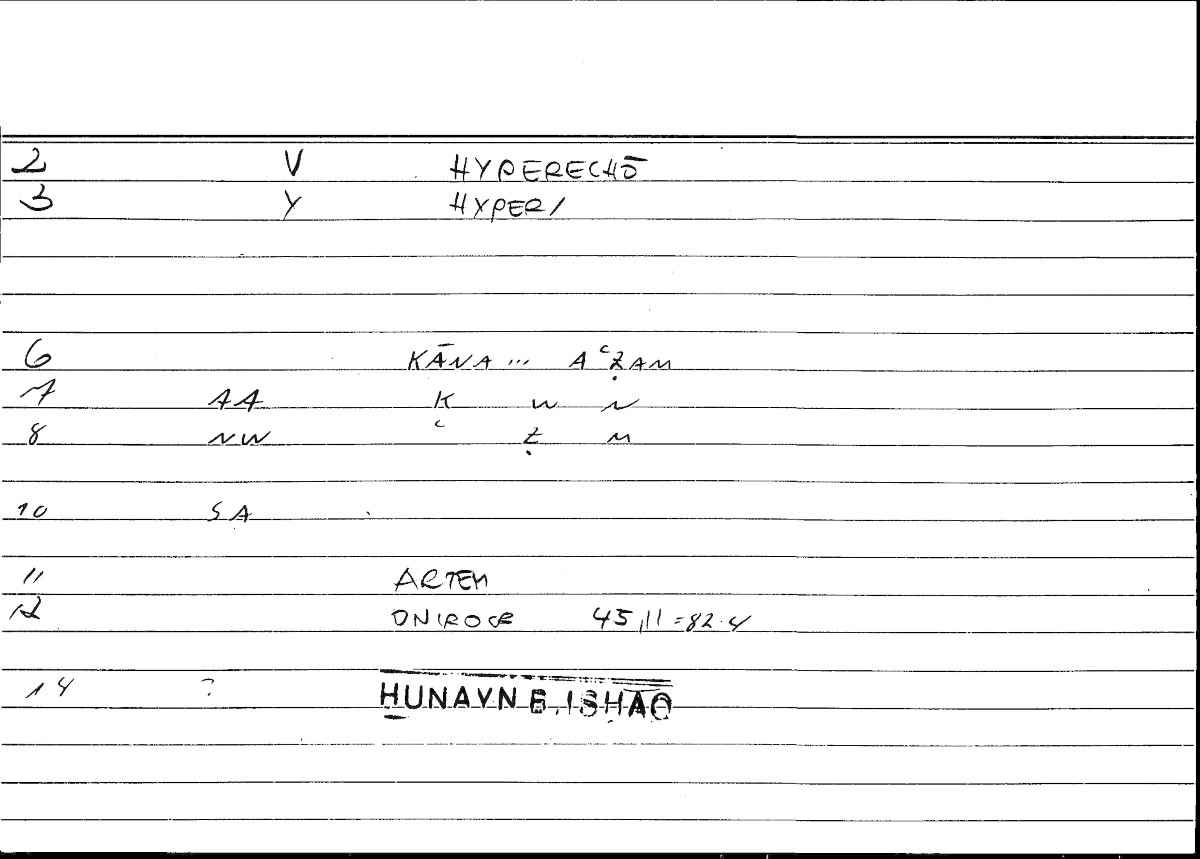 2 V HYPERECHŌ
3 Y HYPER/
6 KĀNA... AʿẒAM
7 AA K W N
8 NW ʿ Ẓ M
10 SA
11 ARTEM
12 ONIROCR 45,11=82.4
14 ? ḤUNAYN B. ISḤĀQ